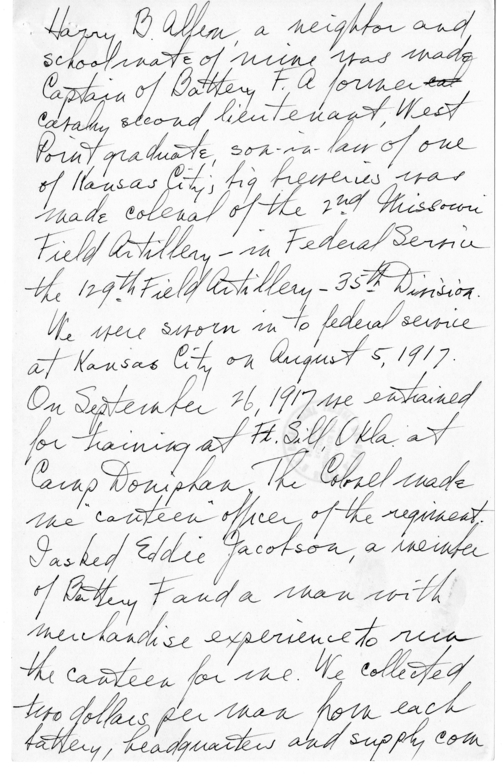 Harry B. Allen, a neighbor and
schoolmate of mine was made
Captain of Battery F. A former
cavalry second lieutenant, West
Point graduate, son-in-law of one
of Kansas City's big breweries was
made colonal of the 2nd Missouri
Field Artillery - in Federal Service
the 129th Field Artillery - 35th Division.
We were sworn in to federal service
at Kansas City on August 5, 1917.
On September 26, 1917 we entrained
for training at Ft. Sill, Okla. at
Camp Doniphan. The Colonel made
me "canteen" officer of the regiment.
I asked Eddie Jacobson, a member
of Battery F and a man with
merchandise experience to run
the canteen for me. We collected
two dollars per man from each
battery, headquarters and supply com